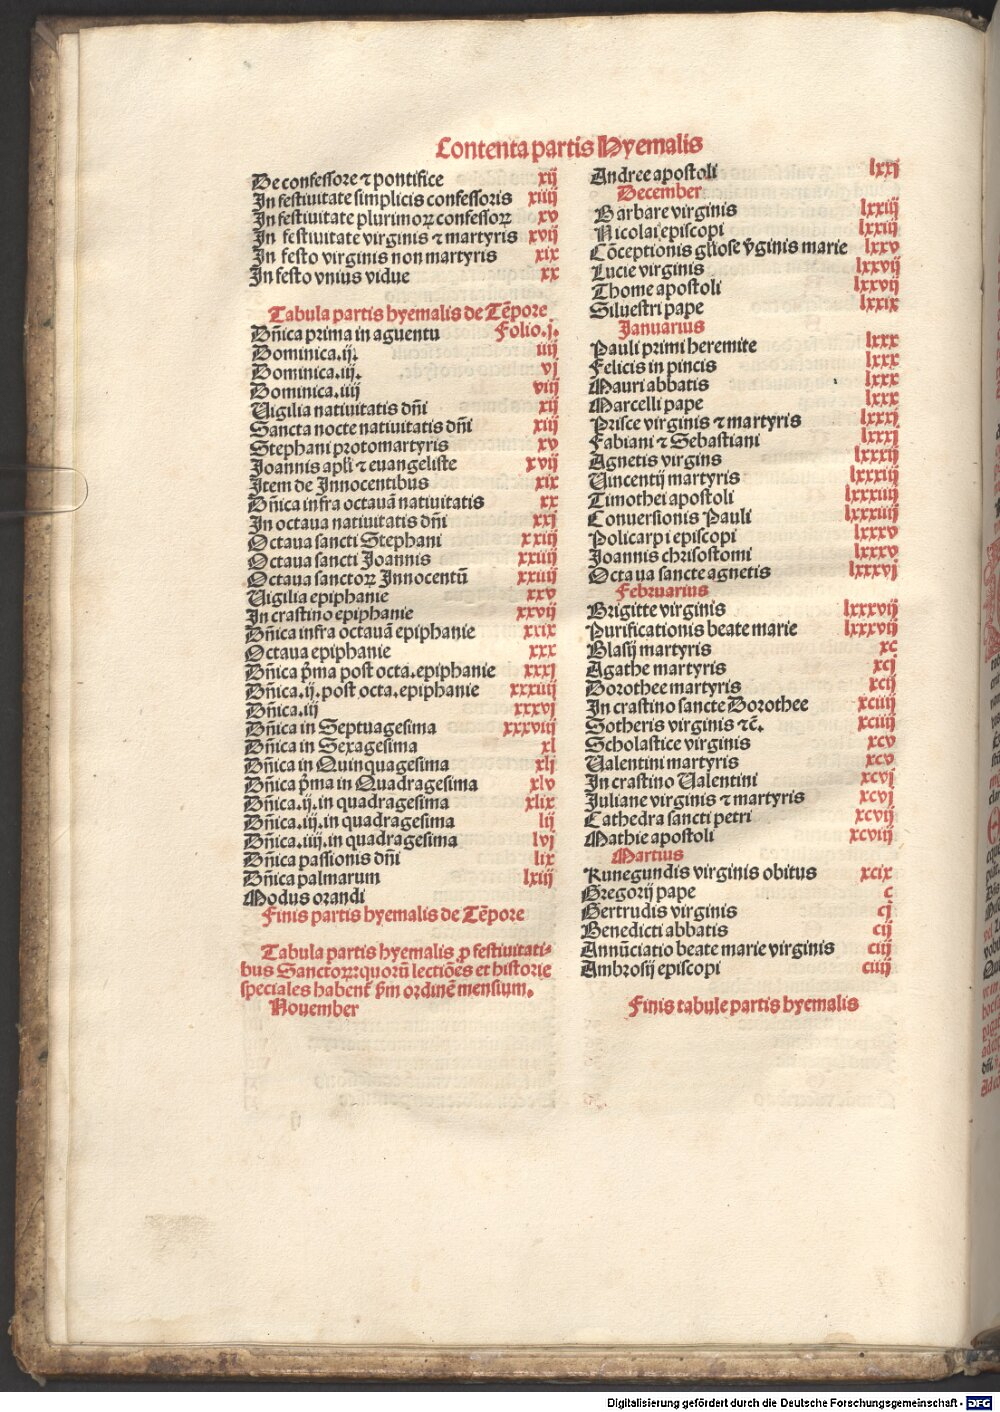 Contenta partis Hyemalis
De confessore ⁊ pontifice xij
In festiuitate simplicis confessoris xiiij
In festiuitate plurimoꝝ confessoꝝ xv
In festiuitate virginis ⁊ martyris xvij
In festo virginis non martyris xix
In festo vnius vidue xx
Tabula partis hyemalis de Tēpore
Dn̄ica prima in aguentu Folio.j.
Dominica.ij. iiij
Dominica.iij. vj
Dominica.iiij viij
Vigilia natiuitatis dn̄i xij
Sancta nocte natiuitatis dn̄i xiij
Stephani protomartyris xv
Joannis apl̄i ⁊ euangeliste xvij
Item de Innocentibus xix
Dn̄ica infra octauā natiuitatis xx
In octaua natiuitatis dn̄i xxj
Octaua sancti Stephani xxiij
Octaua sancti Joannis xxiiij
Octaua sanctoꝝ Innocentū xxiiij
Vigilia epiphanie xxv
In crastino epiphanie xxvij
Dn̄ica infra octauā epiphanie xxix
Octaua epiphanie xxx
Dn̄ica p̄ma post octa.epiphanie xxxj
Dn̄ica.ij.post octa.epiphanie xxxiiij
Dn̄ica.iij xxxvj
Dn̄ica in Septuagesima xxxviij
Dn̄ica in Sexagesima xl
Dn̄ica in Quinquagesima xlj
Dn̄ica p̄ma in Quadragesima xlv
Dn̄ica.ij.in quadragesima xlix
Dn̄ica.iij.in quadragesima lij
Dn̄ica.iiij.in quadragesima lvj
Dn̄ica passionis dn̄i lix
Dn̄ica palmarum lxiij
Modus orandi
Finis partis hyemalis de Tēpore
Tabula partis hyemalis ꝓ festiuitati-
bus Sanctoꝝ:quorū lectiōes et historie
speciales habent̄ ẜm ordinē mensium.
Nouember
Andree apostoli lxxj
December
Barbare virginis lxxiij
Nicolai episcopi lxxiij
Cōceptionis gl̄iose v̄ginis marie lxxv
Lucie virginis lxxvij
Thome apostoli lxxvij
Siluestri pape lxxix
Januarius
Pauli primi heremite lxxx
Felicis in pincis lxxx
Mauri abbatis lxxx
Marcelli pape lxxx
Prisce virginis ⁊ martyris lxxxj
Fabiani ⁊ Sebastiani lxxxj
Agnetis virgins lxxxij
Vincentij martyris lxxxiij
Timothei apostoli lxxxiiij
Conuersionis Pauli lxxxiiij
Policarpi episcopi lxxxv
Joannis chrisostomi lxxxv
Octaua sancte agnetis lxxxvj
Februarius
Brigitte virginis lxxxvij
Purificationis beate marie lxxxvij
Blasij martyris xc
Agathe martyris xcj
Dorothee martyris xcij
In crastino sancte Dorothee xciiij
Sotheris virginis ⁊c̄. xciiij
Scholastice virginis xcv
Valentini martyris xcv
In crastino Valentini xcvj
Juliane virginis ⁊ martyris xcvj
Cathedra sancti petri xcvij
Mathie apostoli xcviij
Martius
Kunegundis virginis obitus xcix
Gregorij pape c
Gertrudis virginis cj
Benedicti abbatis cij
Annūciatio beate marie virginis ciij
Ambrosij episcopi ciiij
Finis tabule partis hyemalis
Digitalisierung gefördert durch die Deutsche Forschungsgemeinschaft - DFG